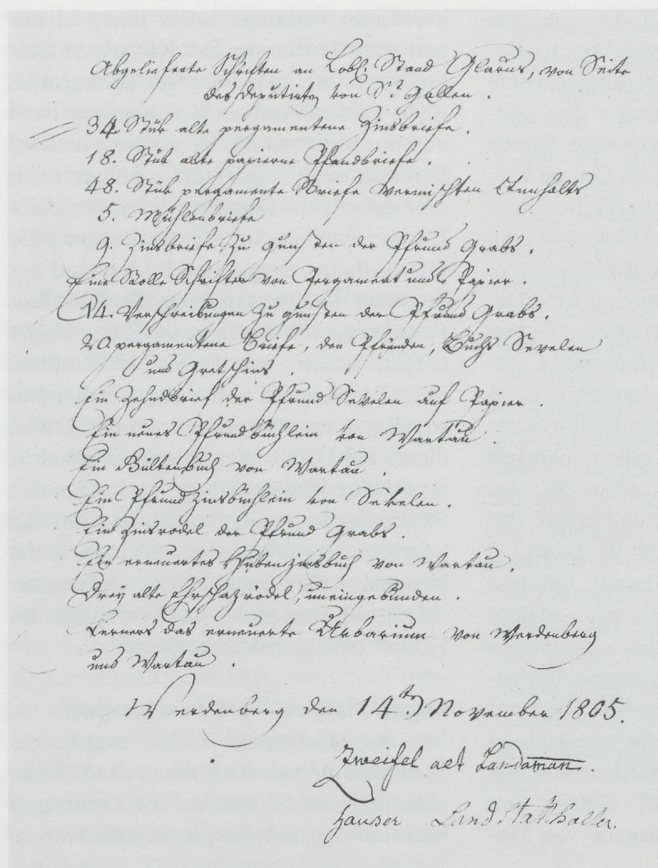 Abgelieferte Schriften an Lobl. Stand Glarus, von Seite
des deputirten von St. Gallen.
34 Stük alte pergamentene Zinsbriefe.
18. Stük alte papierne Pfandbriefe.
48. Stük pergamente Briefe vermischten Innhalts
5. Mühlenbriefe
9. Zinsbriefe, zu gunsten der Pfrund Grabs.
Eine Rolle Schriften von Pergament und Papier.
14. Verschreibungen zu gunsten der Pfrund Grabs.
pergamentene Briefe, den Pfründen, Buchs Sevelen
und Gretschins
Ein Zehndbrief der Pfrund Sevelen auf Papier.
Ein neues Pfrundbüchlein von Wartau.
Ein buch von Wartau.
Ein Pfrund Zinsbüchlein von Sevelen.
Ein Zinsrodel der Pfrund Grabs.
Ein erneuertes Hubenzinsbuch von Wartau.
Drey alte Ehrschazrödel, uneingebunden.
Ferners das erneuerte Urbarium von Werdenberg
und Wartau.
Werdenberg den 14ten November 1805.
Zweifel alt Landaman.
Hauser Landstatthalter.